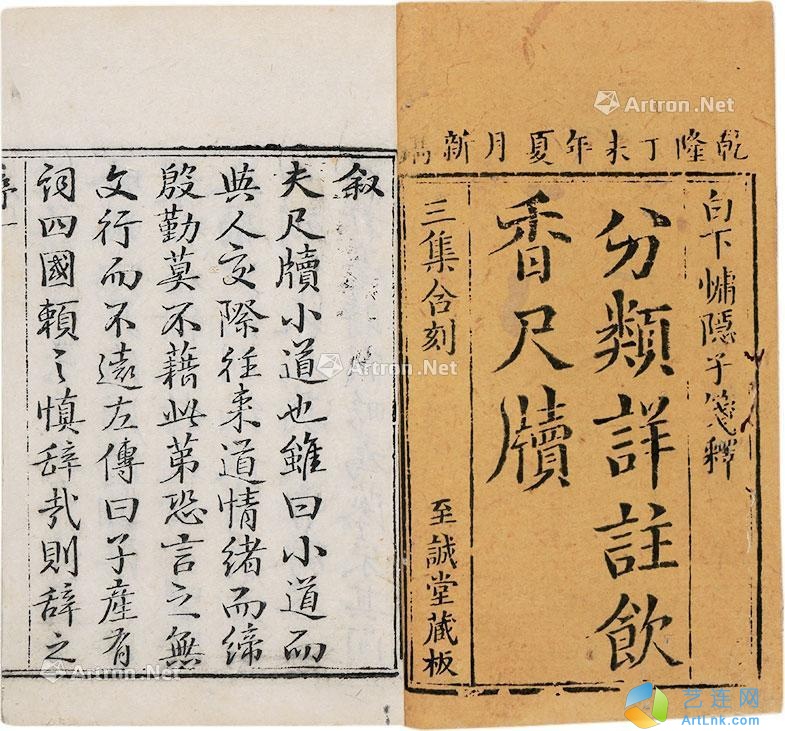 乾隆丁未年夏月新鐫
白下慵隱子箋釋
分類詳註飲
香尺牘
三集合刻
至誠堂藏板
叙
夫尺牘小道也雖曰小道而
與人交際往來道情緒而締
殷勤莫不藉此第恐言之無
文行而不遠左傳曰子產有
詞四國賴之慎辞哉則辞之
序 一
Artron.Net
Artron.Net
Artron.Net
Artron.Net
Artron.Net
艺连网
ArtLnk.com